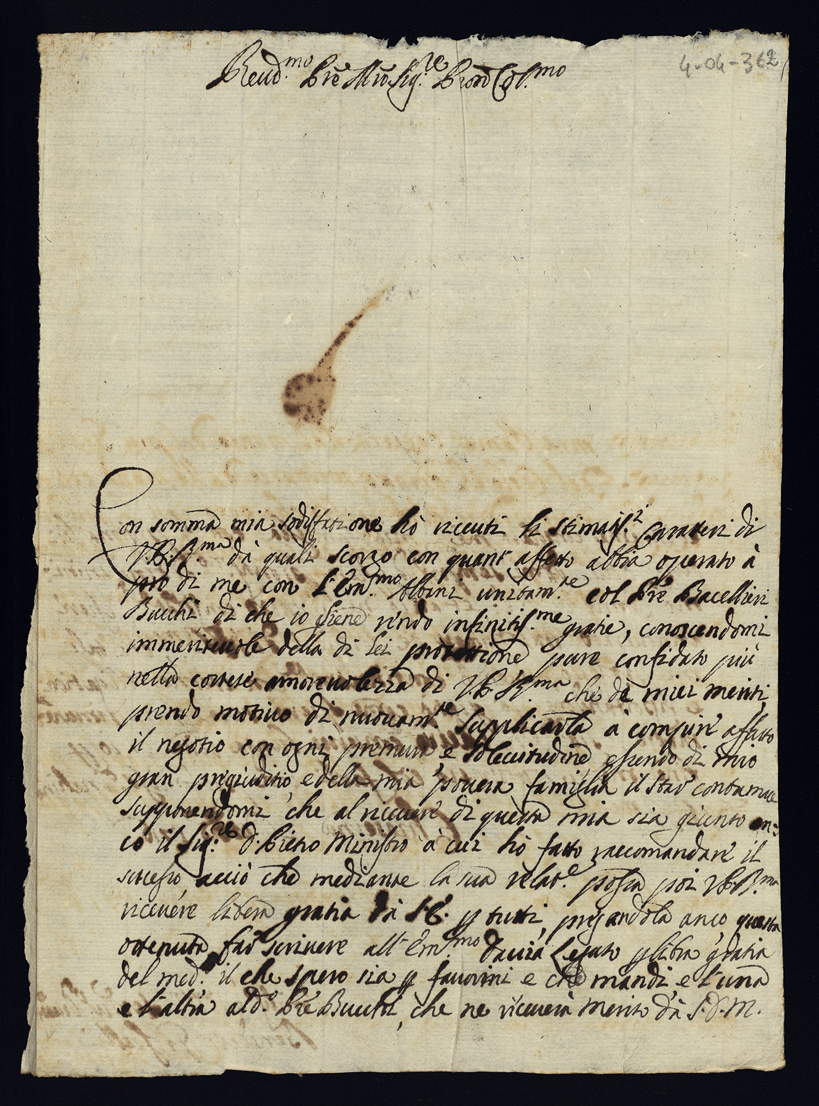 4-04-362
Reud.mo Pre Mio Sig.re Pron Col.mo
Con somma mia sodisfatione hò riceuti li stimatis.i Caratteri di
V.P.R.ma dà quali scorgo con quant' affetto abbia operato à
prò di me con l'Em.mo Albani unitam.te col Pre Bacellieri
Bucchi di che io rendo infinitis.me gratie, conoscendomi
immeriteuole della di lei protettione pure confidato più
nella cortese amoreuolezza di V.P.R.ma che de miei meriti,
prendo motiuo di nuouam.te supplicarla à compire affatto
il negotio con ogni premura e solecitudine essendo di mio
gran pregiuditio e della mia pouera famiglia il star contumace
supponendomi che al riceuere di questa mia sia giunto an=
co il Sig.re D. Pietro Ministro à cui hò fatto raccomandare il
successo acciò che mediante la sua relat.e possa poi V.P.R.ma
riceuere libera gratia dà p tutti, pregandola anco questa
ottenuta far scriuere all' Em.mo Dauia Legato p libra gratia
del med.o il che spero sia p fauorirmi e che mandi e l'una
e l'altra al d.o Pre Bucchi, che ne riceuerà merito dà S.D.M.